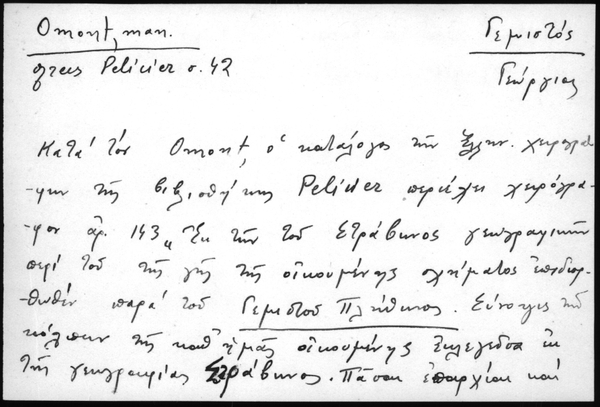 Omont, man.
grecs Pelicier σ. 42
Γεμιστός
Γεώργιος
Κατά τόν Omont, ὁ κατάλογος τῶν Ἑλλην. χειρογρά-
-φων τῆς βιβλιοθήκης Pelicier περιέχει χειρόγρα-
-φον ἀρ. 143 „ Ἐκ τῶν τοῦ Στράβωνος γεωγραφικῶν
περί τοῦ τῆς γῆς τῆς οἰκουμένης σχήματος ἐπιδιορ-
-θωθέν παρά τοῦ Γεμιστοῦ Πλήθωνος. Σύνοψις τῶν
κόλπων τῆς καθ' ἡμᾶς οἰκουμένης ἐκλεγεῖσα ἐκ
τῆς γεωγραφίας Στράβωνος. Πᾶσαι ἐπαρχίαι καί